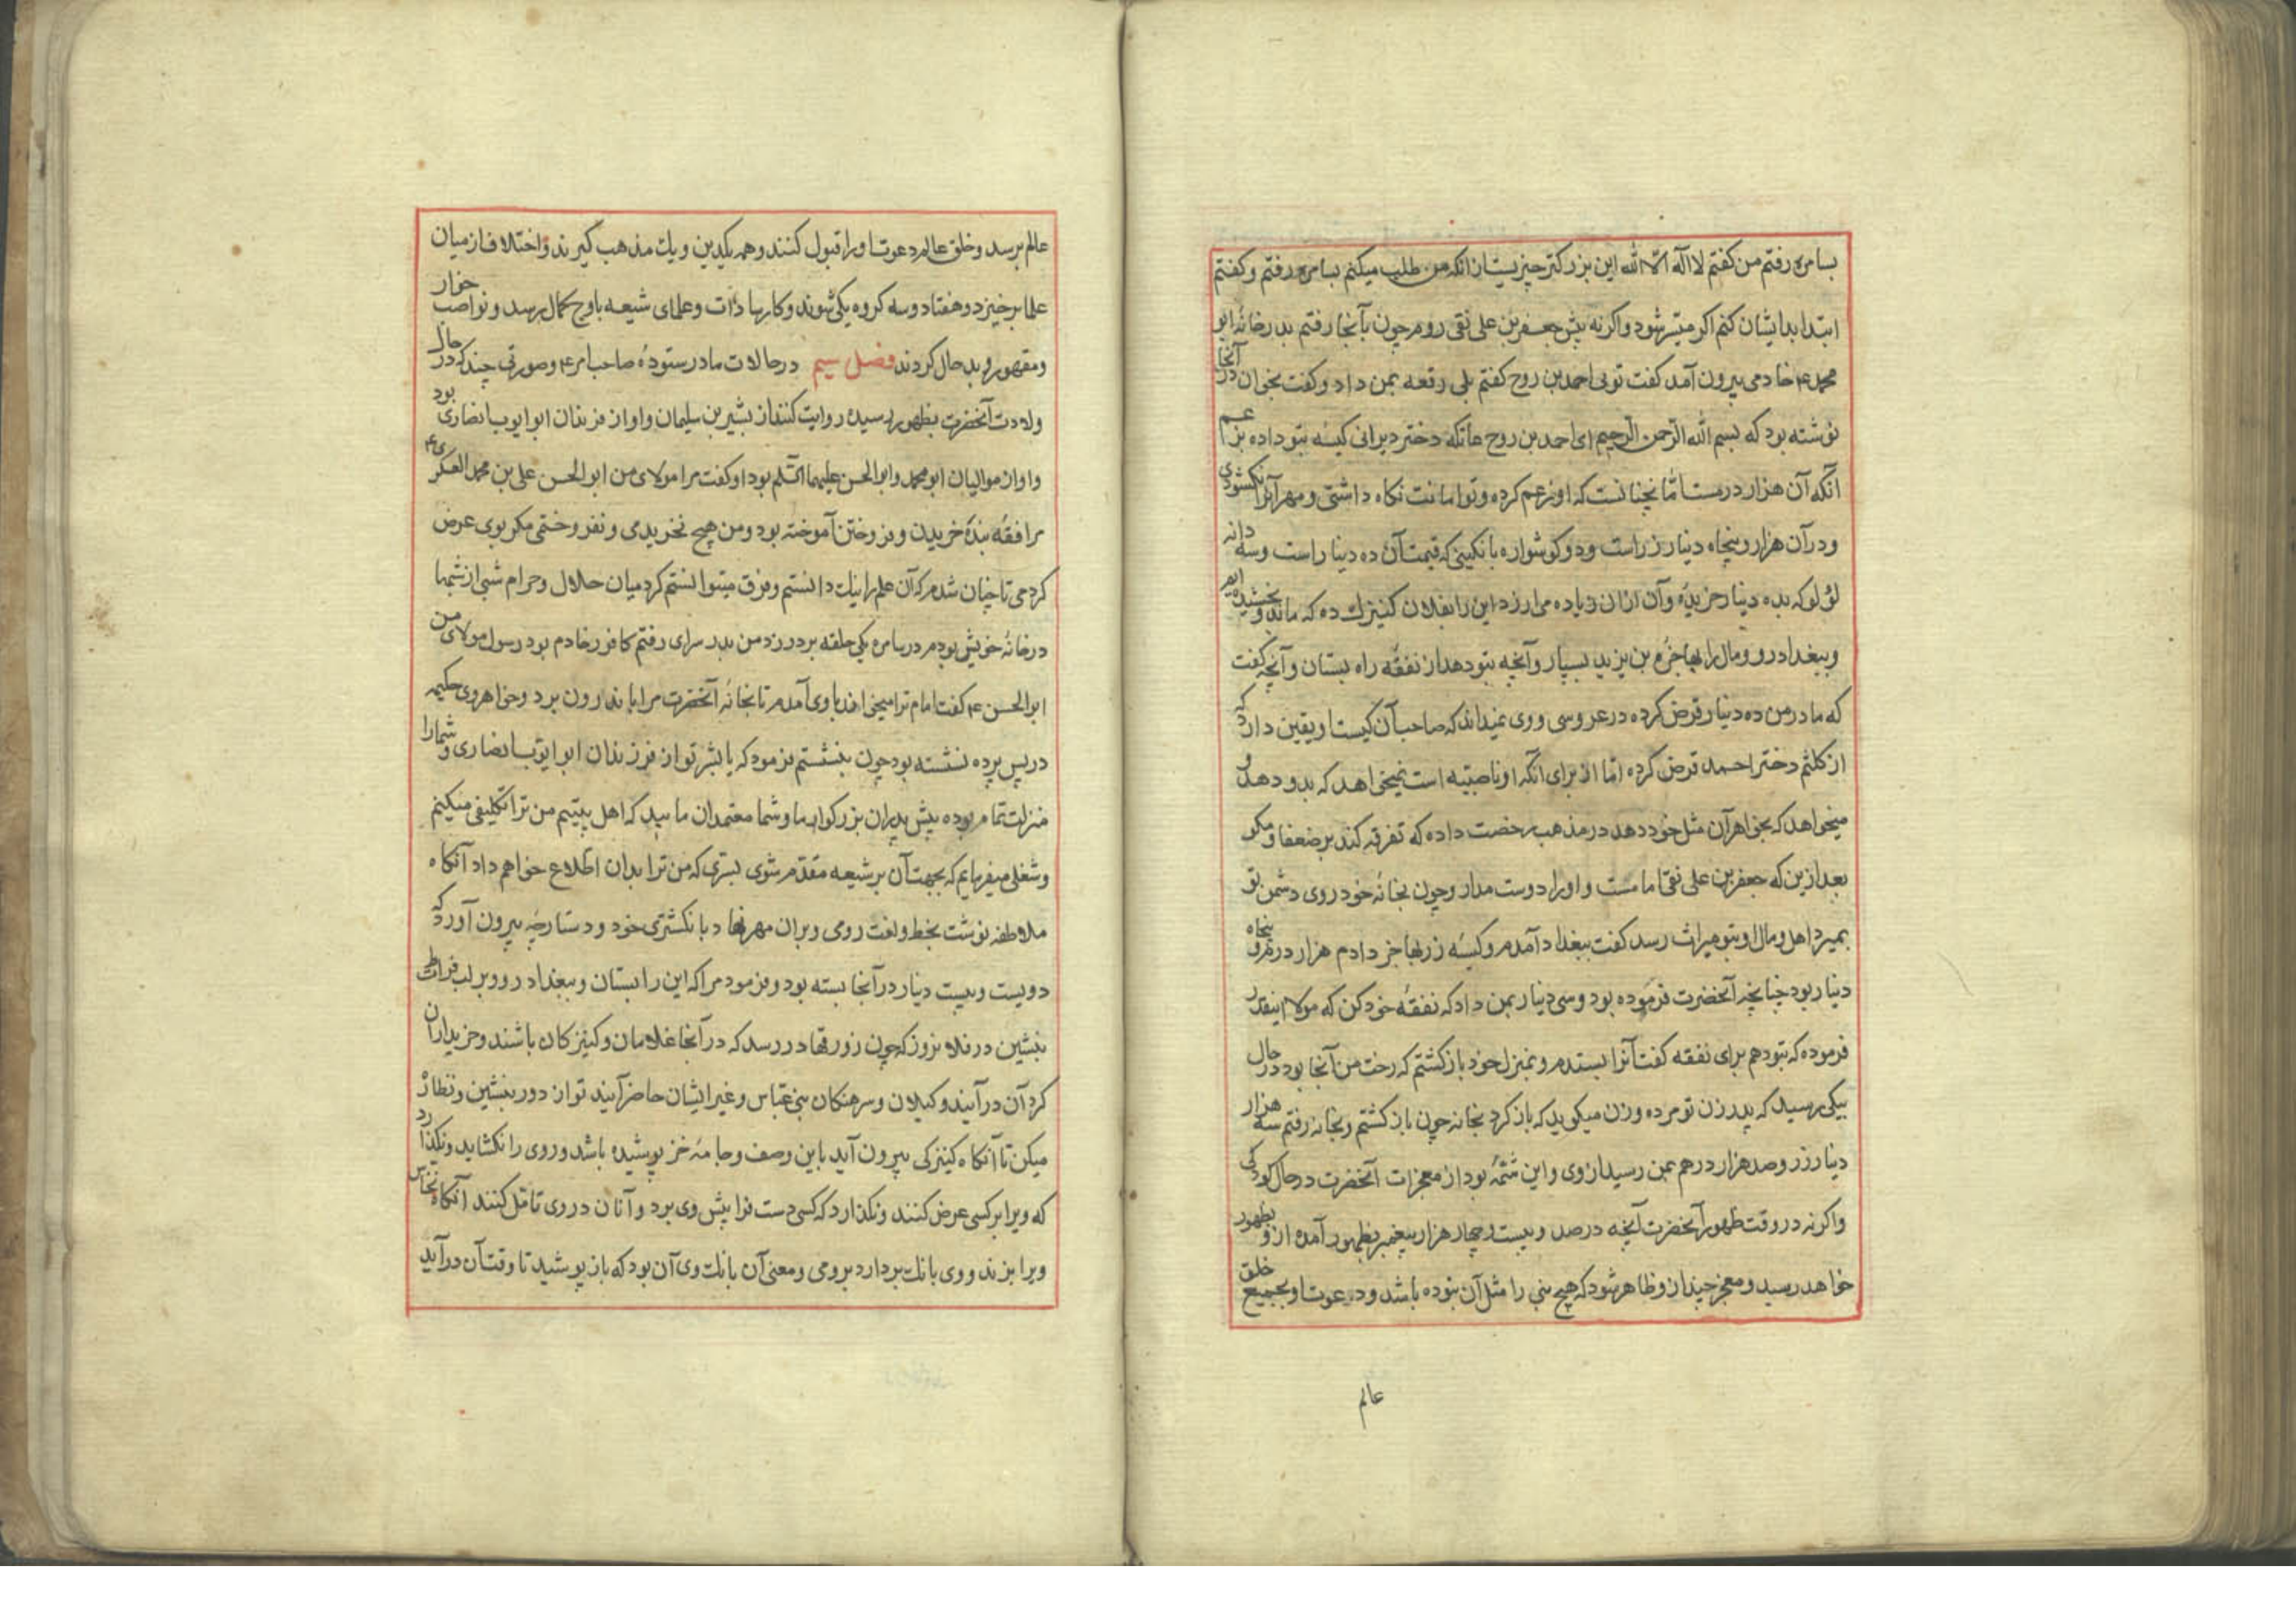 بسامره رفتم من کفتم لا اله الا الله این بزرکتر چیزیست از انکه من طلب میکنم بسامره رفتم و کفتم
ابتدا بدایشان کنم اکر میسر شود و اکر نه پیش جعفر بن علی نقی روم چون بآنجا رفتم بدر خانهٔ ابو
محمد ع خادمی بیرون آمد کفت تویی احمد بن روح کفتم بلی رقعه بمن داد و کفت بخوان در آنجا
نوشته بود که بسم الله الرحمن الرحیم ای احمد بن روح عاتکه دختر دیرانی کیسهٔ بتو داده بزعم
آنکه آن هزار درمست اما نچنانست که او زعم کرده و تو امانت نکاه داشتی و مهر آنرا نکشودی
و در آن هزار و پنجاه دینار زر است و دو کوشواره با نکینی که قیمت آن ده دینار است و سه دانه
لؤلو که بده دینار خریدهٔ و آن ازان زیاده می ارزد این را بفلان کنیزک ده که ما بدو بخشیده ایم
و ببغداد رو و مال را بهاجزم بن یزید بسپار و آنچه بتو دهد از نفقهٔ راه بستان و آنچه کفت
که مادر من ده دینار قرض کرده در عروسی و وی نمیداند که صاحب آن کیست او یقین دارد که
از کلثم دختر احمد قرض کرده اما از برای آنکه او ناصبیه است نمیخواهد که بدو دهد و
میخواهد که بخواهر آن مثل خود دهد در مذهب رخصت داده که تفرقه کند بر ضعفا و مکر
بعد ازین که جعفر بن علی نقی امامست و او را دوست مدار و چون بخانهٔ خود روی دشمن تو
بمیرد اهل و مال او بتو میراث رسد کفت ببغداد آمدم و کیسهٔ زر بهاجز دادم هزار درم و پنجاه
دینار بود چنانچه آنحضرت فرموده بود و سی دینار بمن داد که نفقهٔ خود کن که مولا اینقدر
فرموده که بتو دهم برای نفقه کفت آنرا بستدم و بمنزل خود باز کشتم که رخت من آنجا بود در حال
پیکی برسید که پدر زن تو مرده و زن میکوید که باز کرد بخانه چون باز کشتم و بخانه رفتم سه هزار
دینار زر و صد هزار درهم بمن رسید از وی و این شمهٔ بود از معجزات آنحضرت در حال کودکی
و اکر نه در وقت ظهور آنحضرت آنچه در صد و بیست و چهار هزار پیغمبر بظهور آمده از و بظهور
خواهد رسید و معجز چند از و ظاهر شود که هیچ نبی را مثل آن نبوده باشد و دعوت او بجمیع خلق
عالم
عالم برسد و خلق عالم دعوت او را قبول کنند و همه یکدین و یک مذهب کیرند و اختلاف از میان
علما برخیزد و هفتاد و سه کروه یکی شوند و کارها ذات و علمای شیعه باوج کمال برسد و نواصب خوار
و مقهور و بد حال کردند فصل سیم در حالات مادر ستودهٔ صاحب امر ع و صورتی چند که در حال
ولادت آنحضرت بظهور رسیده روایت کنند از بشیر بن سلیمان و او از فرزندان ابو ایوب انصاری بود
و او از موالیان ابو محمد و ابو الحسن علیهما السلم بود او کفت مرا مولای من ابو الحسن علی بن محمد العسکری ع
مرا فقه بندهٔ خریدن و فروختن آموخته بود و من هیچ نخریدمی و نفروختمی مکر بوی عرض
کردمی تا چنان شدم که آن علم را نیک دانستم و فرق میتوانستم کرد میان حلال و حرام شبی از شبها
در خانهٔ خویش بودم در سامره یکی حلقه بر در زد من بدر سرای رفتم کافور خادم بود رسول مولای من
ابو الحسن ع کفت امام ترا میخواند با وی آمدم تا بخانهٔ آنحضرت مرا باندرون برد و خواهر وی حکیمه
در پس پرده نشسته بود چون بنشستم فرمود که یا بشر تو از فرزندان ابو ایوب انصاری و شما را
منزلت تمام بوده پیش پدران بزرکوار ما و شما معتمدان مایید که اهل بیتیم من ترا تکلیفی میکنم
و شغلی میفرمایم که بجهت آن بر شیعه مقدم شوی بسری که من ترا بدان اطلاع خواهم داد آنکاه
ملاطفه نوشت بخط و لغت رومی و بران مهر نهاد با نکشتری خود و دستارچهٔ بیرون آورد که
دویست و بیست دینار در آنجا بسته بود و فرمود مرا که این را بستان و ببغداد رو و بر لب فرات
بنشین در فلان روز که چون زورقها در رسد که در آنجا غلامان و کنیزکان باشند و خریداران
کرد آن درآیند وکیلان و سرهنکان بنی عباس و غیر ایشان حاضر آیند تو از دور بنشین و نظاره
میکن تا آنکاه کنیزکی بیرون آید باین وصف و جامهٔ خز پوشیده باشد و روی را نکشاید و نکذارد
که ویرا بر کسی عرض کنند و نکذارد که کسی دست فرا پیش وی برد و آنان در وی تامل کنند آنکاه نخاس
ویرا بزند و وی بانک بردارد برومی و معنی آن بانک وی آن بود که باز پوشید تا وقت آن درآید